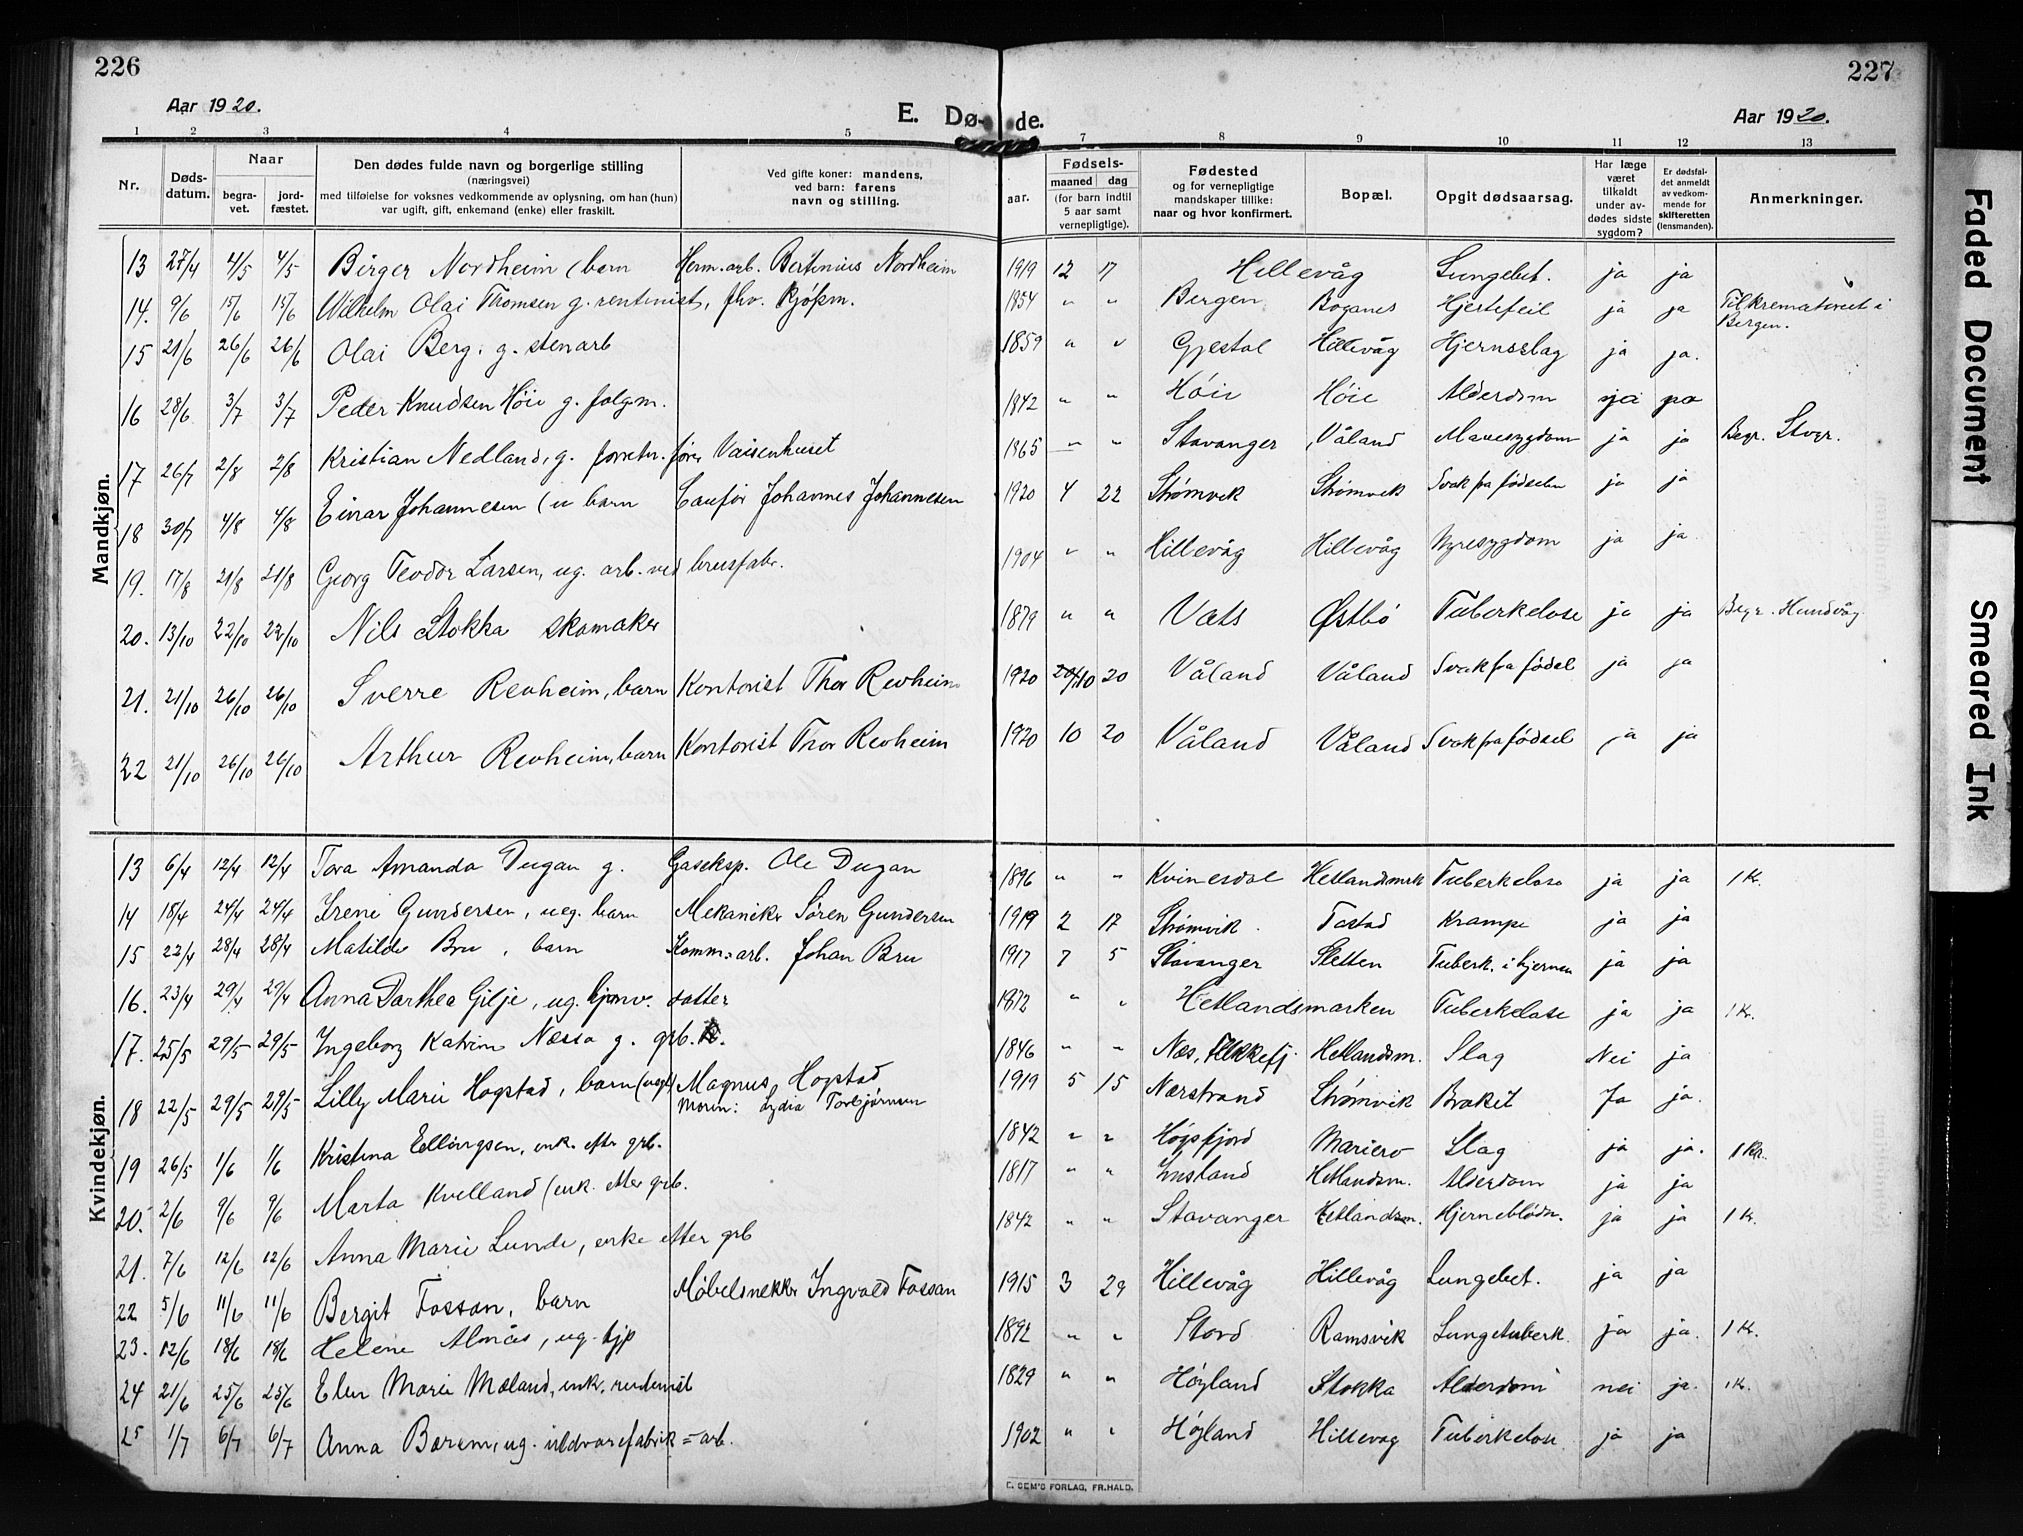 226
227
Aar 1920.
E. Dø- de.
Aar 1920.
1 2 3 4 5 7 8 9 10 11 12 13
Nr.
Døds-
datum.
Naar
begra-
vet.
jord-
fæstet.
Den dødes fulde navn og borgerlige stilling
(næringsvei)
med tilføielse for voksnes vedkommende av oplysning, om han (hun)
var ugift, gift, enkemand (enke) eller fraskilt.
Ved gifte koner: mandens,
ved barn: farens
navn og stilling.
aar.
Fødsels-
maaned dag
(for barn indtil
5 aar samt
vernepligtige).
Fødested
og for vernepligtige
mandskaper tillike:
naar og hvor konfirmert.
Bopæl.
Opgit dødsaarsag.
Har læge
været
tilkaldt
under av-
dødes sidste
sygdom?
Er dødsfal-
det anmeldt
av vedkom-
mende for
skifteretten
(lensmanden).
Anmerkninger.
Mandkjøn.
13 27/4 4/5 4/5 Birger Nordheim (barn Herm.arb. Bertinius Nordheim 1919 12 17 Hillevåg Lungebet. ja ja
14. 9/6 15/6 15/6 Wilhelm Olai Thomsen g. rentenist, fhv. kjøpm. 1854 " " Bergen Boganes Hjertefeil ja ja Til krematoriet i
Bergen.
15 21/6 26/6 26/6 Olai Berg, g. stenarb 1859 " " Gjestal Hillevåg Hjerneslag ja ja.
16 28/6 3/7 3/7 Peder Knudsen Høie g. folgm. 1842 " " Høie Høie Alderdom ja ja
17 26/7 2/8 2/8 Kristian Nedland, g. forretn.fører Vaisenhuset 1865 " " Stavanger Våland Mavesygdom ja ja Begr. Stvgr.
18 30/7 4/8 4/8 Einar Johannesen (u barn Caufør Johannes Johannesen 1920 4 22 Strømvik Strømvik Svak fra fødselen ja ja
19. 17/8 21/8 21/8 Georg Teodor Larsen, ug. arb. ved brusfabr. 1904 " " Hillevåg Hillevåg Nyresygdom ja ja
20. 13/10 22/10 22/10 Nils Stokka skomaker 1879 " " Vats Østbø Tuberkelose ja ja Begr. Hundvåg
21. 21/10 26/10 26/10 Sverre Revheim, barn Kontorist Thor Revheim 1920 10 20 Våland Våland Svak fra fødsel ja ja
22 21/10 26/10 26/10 Arthur Revheim, barn Kontorist Thor Revheim 1920 10 20 Våland Våland Svak fra fødsel ja ja
Kvindekjøn.
13 6/4 12/4 12/4 Tora Amanda Dugan g. Gaseksp. Ole Dugan 1896 " " Kvinesdal Hetlandsmrk Tuberkelose ja ja 1 Kr.
14 18/4 24/4 24/4 Irene Gundersen, ueg. barn Mekaniker Søren Gundersen 1919 2 17 Strømvik Tastad Krampe ja ja
15 22/4 28/4 28/4 Matilde Bru, barn Komm.arb. Johan Bru 1917 7 5 Stavanger Sletten Tuberk. i hjernen ja ja
16. 23/4 29/4 29/4 Anna Dorthea Gilje, ug. hjmv. datter 1872 " " Hetlandsmarken Tuberkelose ja ja 1 Kr.
17. 25/5 29/5 29/5 Ingeborg Katrine Næssa g. grb. 1846 " " Næs, Flekkefj. Hetlandsm. Slag Nei ja
18 22/5 29/5 29/5 Lilly Marie Hogstad, barn (uegt) Magnus Hogstad
Moren: Lydia Torbjørnsen 1919 5 15 Nærstrand Strømvik Braket Ja ja.
19 26/5 1/6 1/6 Kristina Edlingsen, enk. efter grb. 1842 " " Høgsfjord Mariero Slag ja ja. 1 Kr.
20. 2/6 9/6 9/6 Marta Kvelland (enk. efter grb. 1817 " " Imsland Hetlandsm. Alderdom ja ja
21. 7/6 12/6 12/6 Anna Marie Lunde, enke efter grb 1842 " " Stavanger Hetlandsm. Hjerneblødn. ja ja 1 Kr.
22 5/6 11/6 11/6 Bergit Fossan, barn Møbelsnekker Ingvald Fossan 1915 3 29 Hillevåg Hillevåg Lungebet. ja ja
23. 12/6 18/6 18/6 Helene Almås, ug. hjp 1892 " " Stord Ramsvik Lungetuberk. ja ja. 1 Kr.
24 21/6 25/6 25/6 Elen Marie Mæland, enk. 1829 " " Høyland Stokka Alderdom nei ja. 1 Kr.
25 1/7 6/7 6/7 Anna Borem, ug. uldvarefabrik=arb. 1902 " " Høyland Hillevåg Tuberkelose ja ja
E. SEM'S FORLAG, FR.HALD.
Faded Document
Smeared Ink